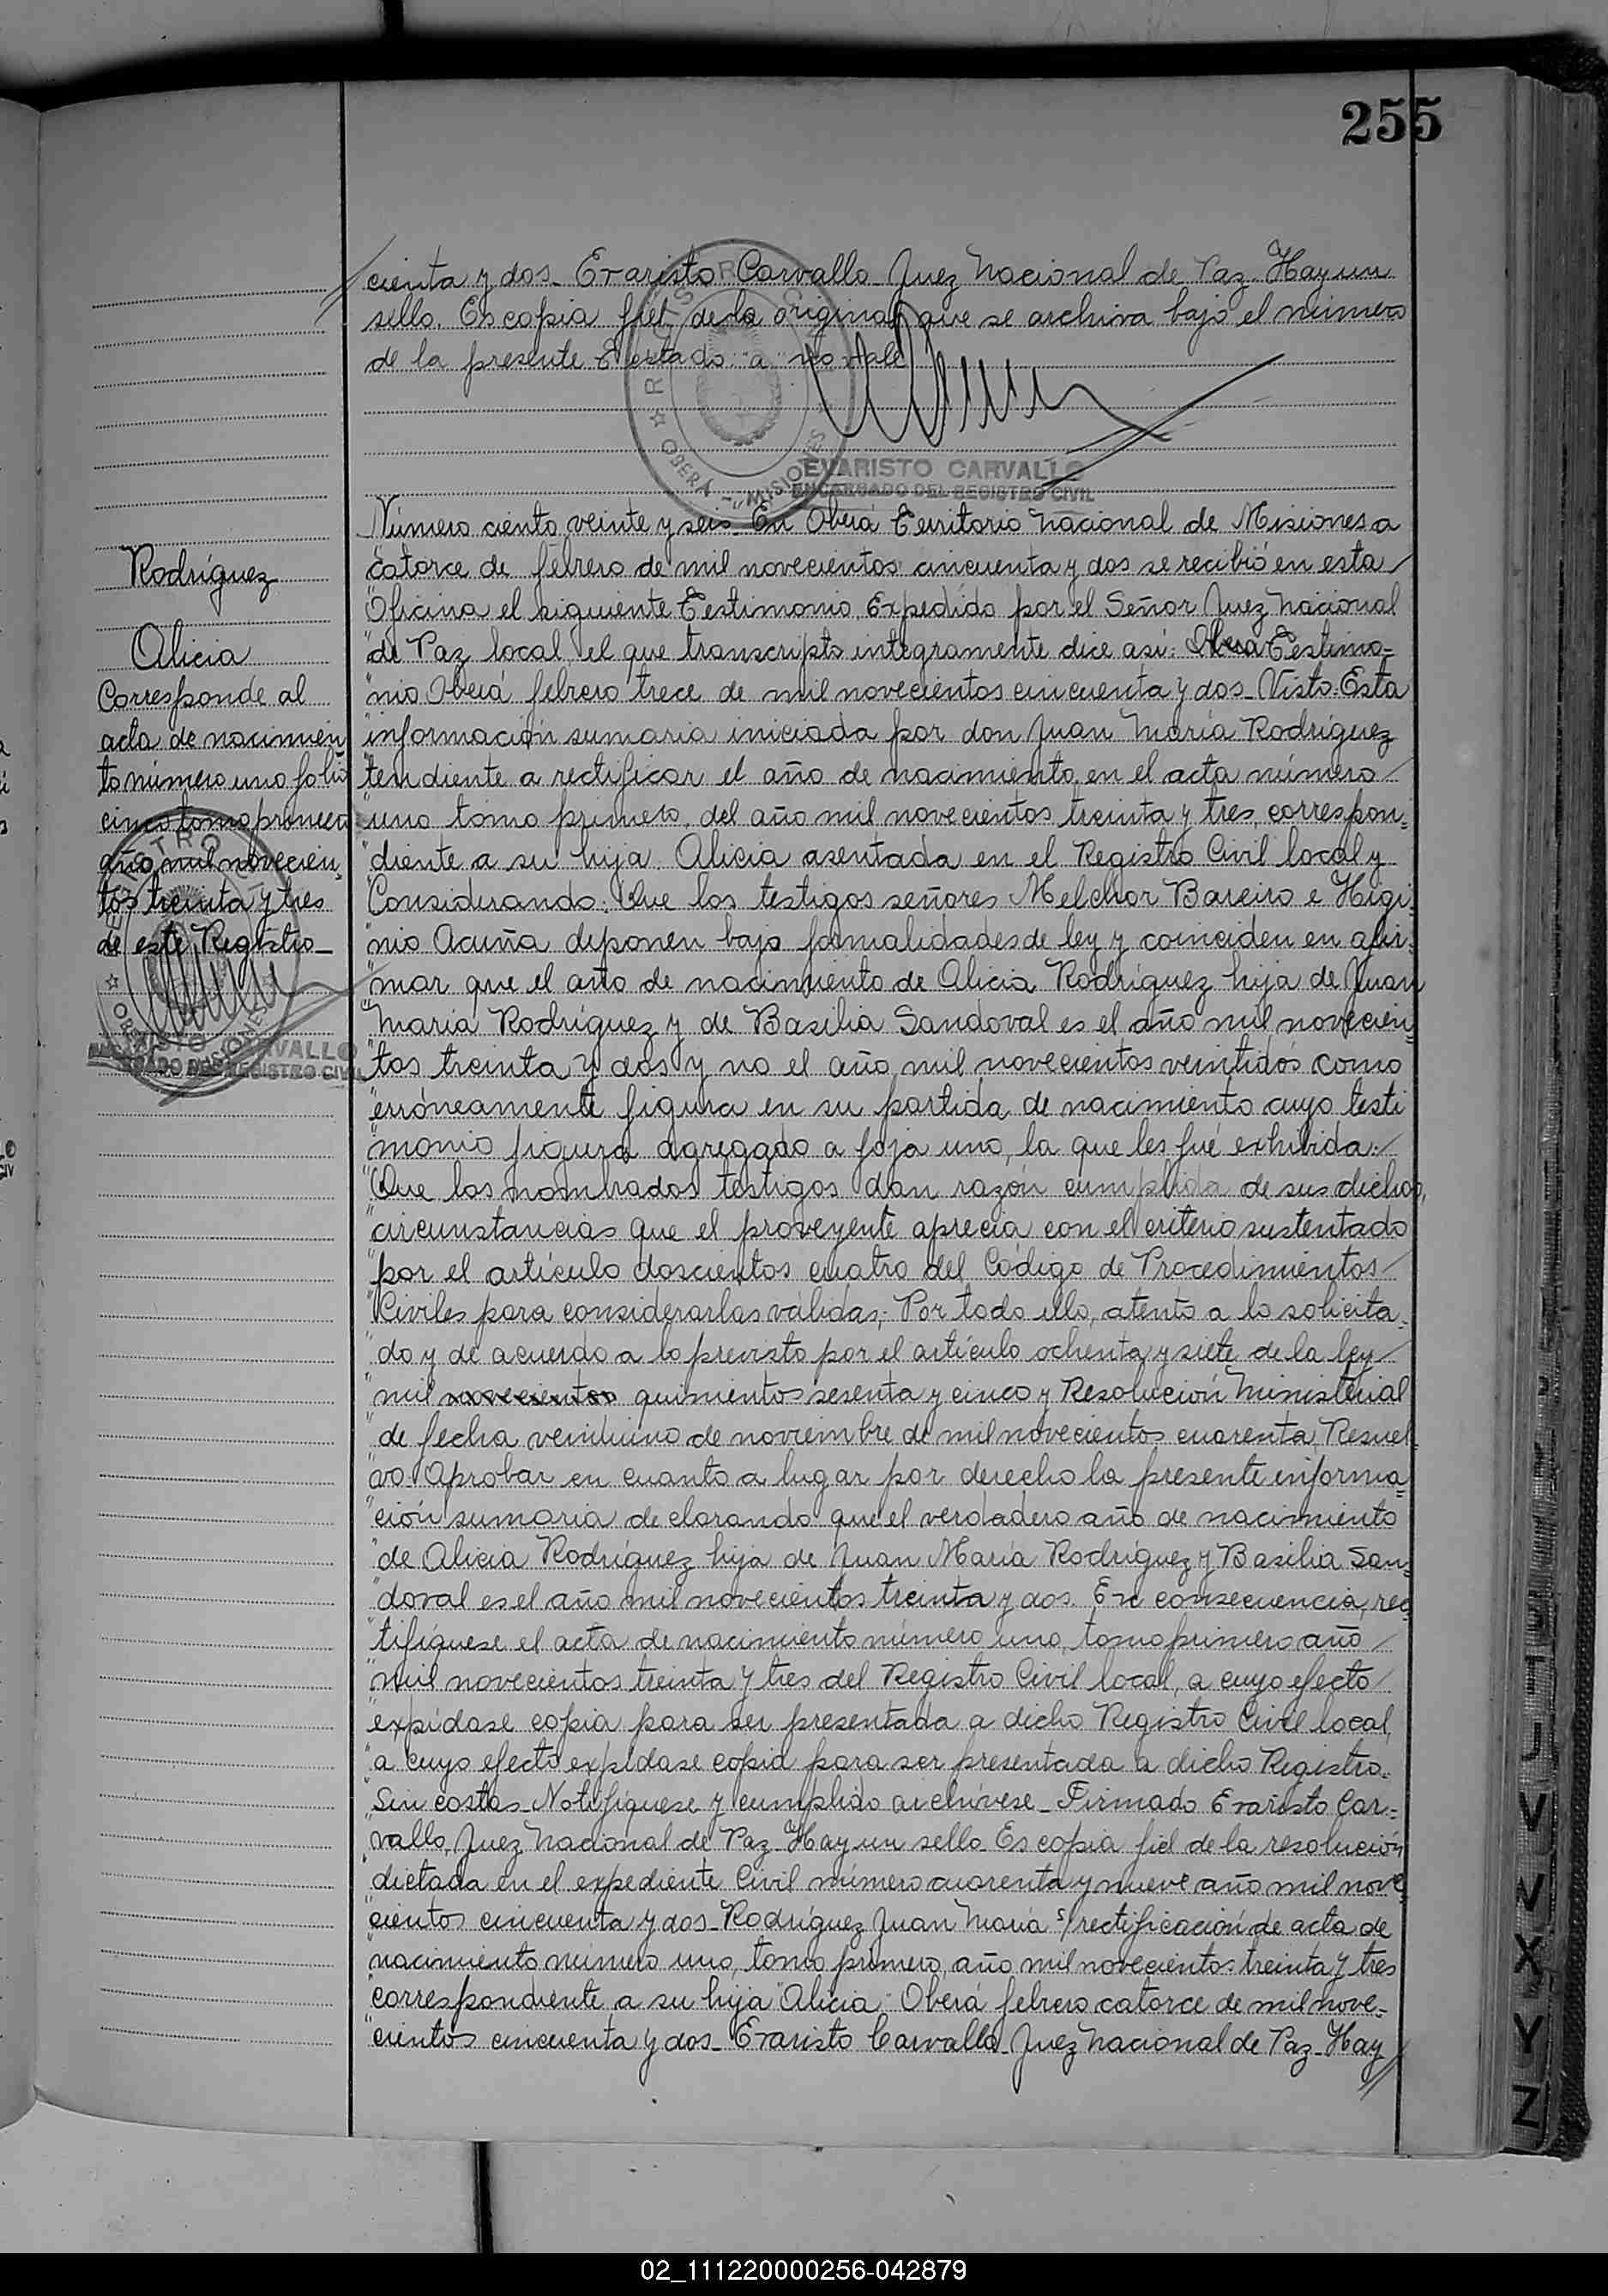 255
cienta y dos_ Evaristo Carvallo_ Juez Nacional de Paz_ Hay un
sello. Es copia fiel de la original que se archiva bajo el número
de la presente Testado: a: no vale
REGISTRO CIVIL
OBERA - MISIONES
EVARISTO CARVALLO
ENCARGADO DEL REGISTRO CIVIL
Rodríguez
Alicia
Corresponde al
acta de nacimien
to número uno folio
cinco tomo primero
año mil novecien,
tos treinta y tres
de este Registro_
CARVALLO
ENCARGADO DEL REGISTRO CIVIL
Número ciento veinte y seis_ En Oberá Territorio Nacional de Misiones a
catorce de febrero de mil novecientos cincuenta y dos se recibió en esta
Oficina el siguiente Testimonio, Expedido por el Señor Juez Nacional
"de Paz local el que transcripto integramente dice así: Testimo=
"nio Oberá febrero trece de mil novecientos cincuenta y dos_ Visto: Esta
"información sumaria iniciada por don Juan María Rodríguez
"tendiente a rectificar el año de nacimiento en el acta número
"uno tomo primero, del año mil novecientos treinta y tres, correspon=
"diente a su hija Alicia asentada en el Registro Civil local y
"Considerando: Que los testigos señores Melchor Bareiro e Higi=
"nio Acuña deponen bajo formalidades de ley y coinciden en afir=
"mar que el año de nacimiento de Alicia Rodríguez hija de Juan
"María Rodríguez y de Basilia Sandoval es el año mil novecien=
"tos treinta y dos y no el año mil novecientos veintidós como
"erróneamente figura en su partida de nacimiento cuyo testi
"monio figura agregado a foja uno, la que les fué exhibida:
"Que los nombrados testigos dan razón cumplida de sus dichos,
"circunstancias que el proveyente aprecia con el criterio sustentado
"por el artículo doscientos cuatro del Código de Procedimientos
"Civiles para considerarlas válidas; Por todo ello, atento a lo solicita=
"do y de acuerdo a lo previsto por el artículo ochenta y siete de la ley
"mil novecientos quinientos sesenta y cinco y Resolución Ministerial
"de fecha veintiuno de noviembre de mil novecientos cuarenta, Resuel=
"vo: Aprobar en cuanto a lugar por derecho la presente informa=
"ción sumaria declarando que el verdadero año de nacimiento
"de Alicia Rodríguez hija de Juan María Rodríguez y Basilia San=
"doval es el año mil novecientos treinta y dos. En consecuencia, rec
"tifíquese el acta de nacimiento número uno, tomo primero año
"mil novecientos treinta y tres del Registro Civil local, a cuyo efecto
"expídase copia para ser presentada a dicho Registro Civil local,
"a cuyo efecto expídase copia para ser presentada a dicho Registro.
"Sin costas_ Notifíquese y cumplido archívese_ Firmado Evaristo Car=
"vallo, Juez Nacional de Paz_ Hay un sello_ Es copia fiel de la resolución
"dictada en el expediente Civil número cuarenta y nueve año mil nove=
"cientos cincuenta y dos_ Rodríguez Juan María s/ rectificación de acta de
"nacimiento número uno, tomo primero, año mil novecientos treinta y tres
"correspondiente a su hija "Alicia" Oberá febrero catorce de mil nove=
"cientos cincuenta y dos_ Evaristo Carvallo_ Juez Nacional de Paz_ Hay
V
X
Y
Z
02_111220000256-042879